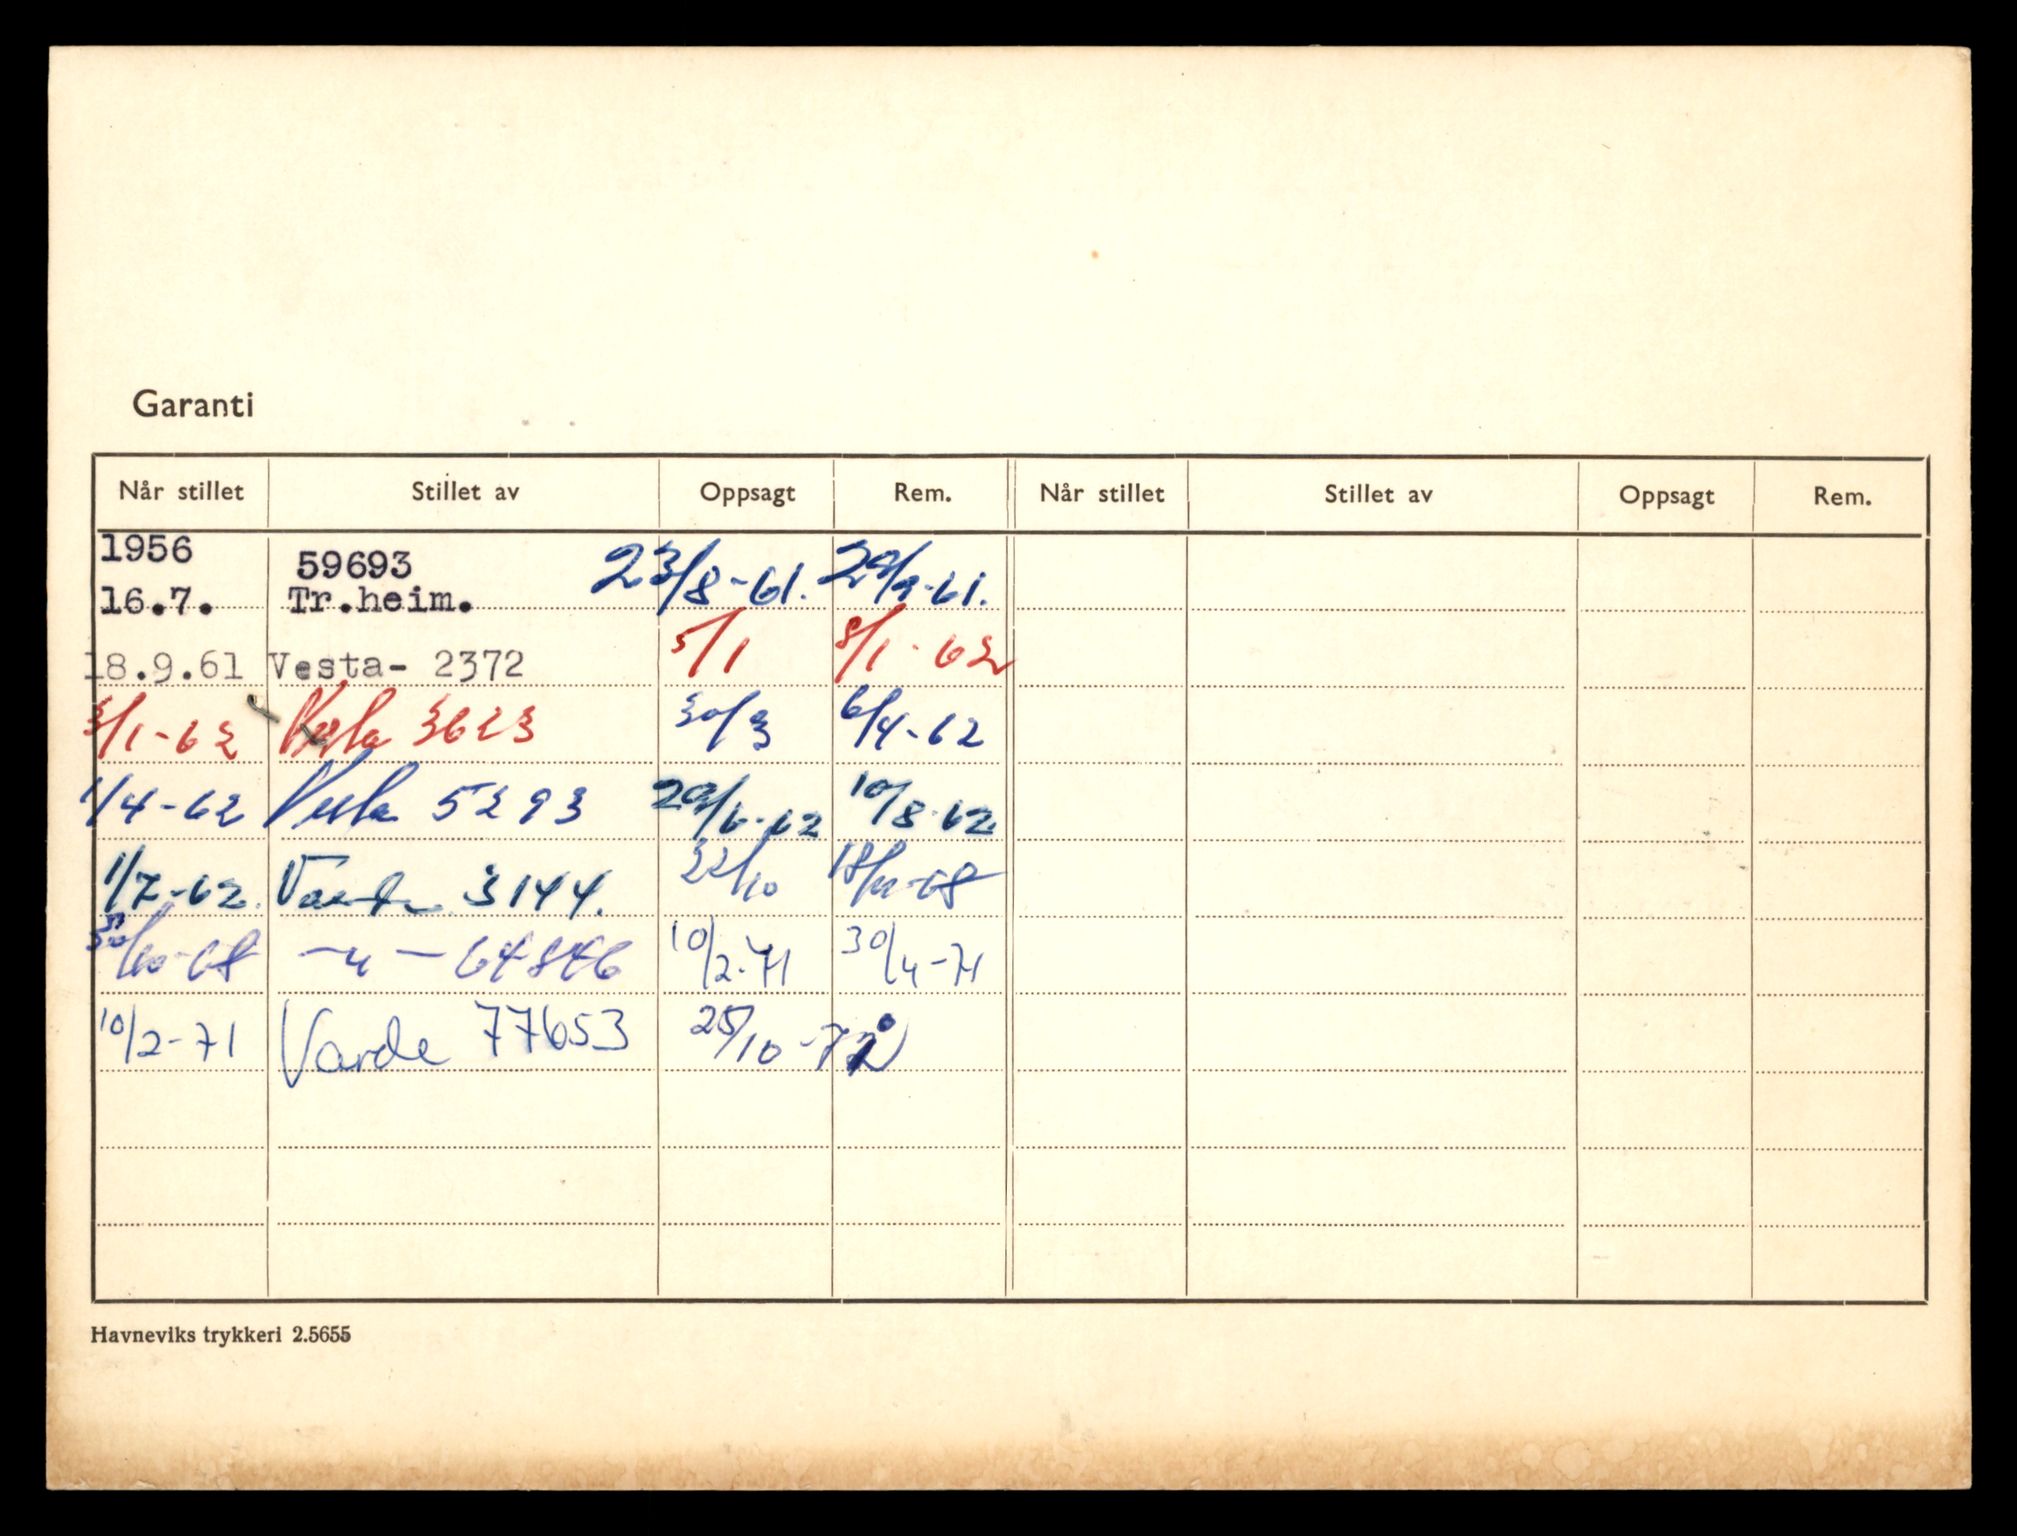 Garanti
Når stillet Stillet av Oppsagt Rem. Når stillet Stillet av Oppsagt Rem.
1956 59693 23/8-61. 29/9-61.
16.7. Tr.heim.
18.9.61 Vesta- 2372 5/1 8/1-62
3/1-62 Vesta 3623 30/3 6/4-62
1/4-62 Vesta 5293 29/6-62 10/8-62
1/7-62. Varde 3144. 22/10 18/11-68
30/10-68 -"- 64846 10/2-71 30/4-71
10/2-71 Varde 77653 25/10-72
Havneviks trykkeri 2.5655